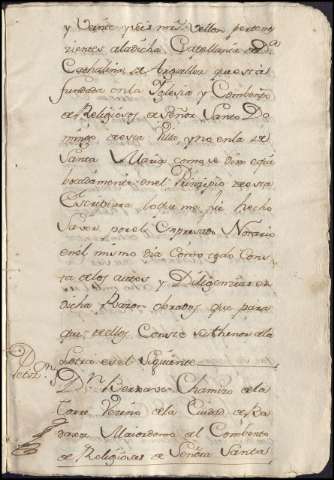 y Veinte y seis mrs. vellon pertene
zientes a la dicha Capellania de Da.
Cathalina de Arguellos que està
fundada en la Yglesia y Combento
de Religiosos de Señor Santo Do
mingo de esta Villa y no en la de
Santa Maria como se dixo equi
bocadamente en el Principio de esta
Escriptura lo que me fue hecho
Saver por el Expresado Notario
en el mismo dia Como todo Cons
ta de los autos y Diligencias en
dicha Razon obrados que para
que de ellos Conste su thenor a la
Letra es el Siguiente
Petizn.
Dn. Bernave Chamizo de la
Torre Vezino de la Ciudad de Ba
daxoz Maiordomo del Combento
de Religiosas de Señora Santa